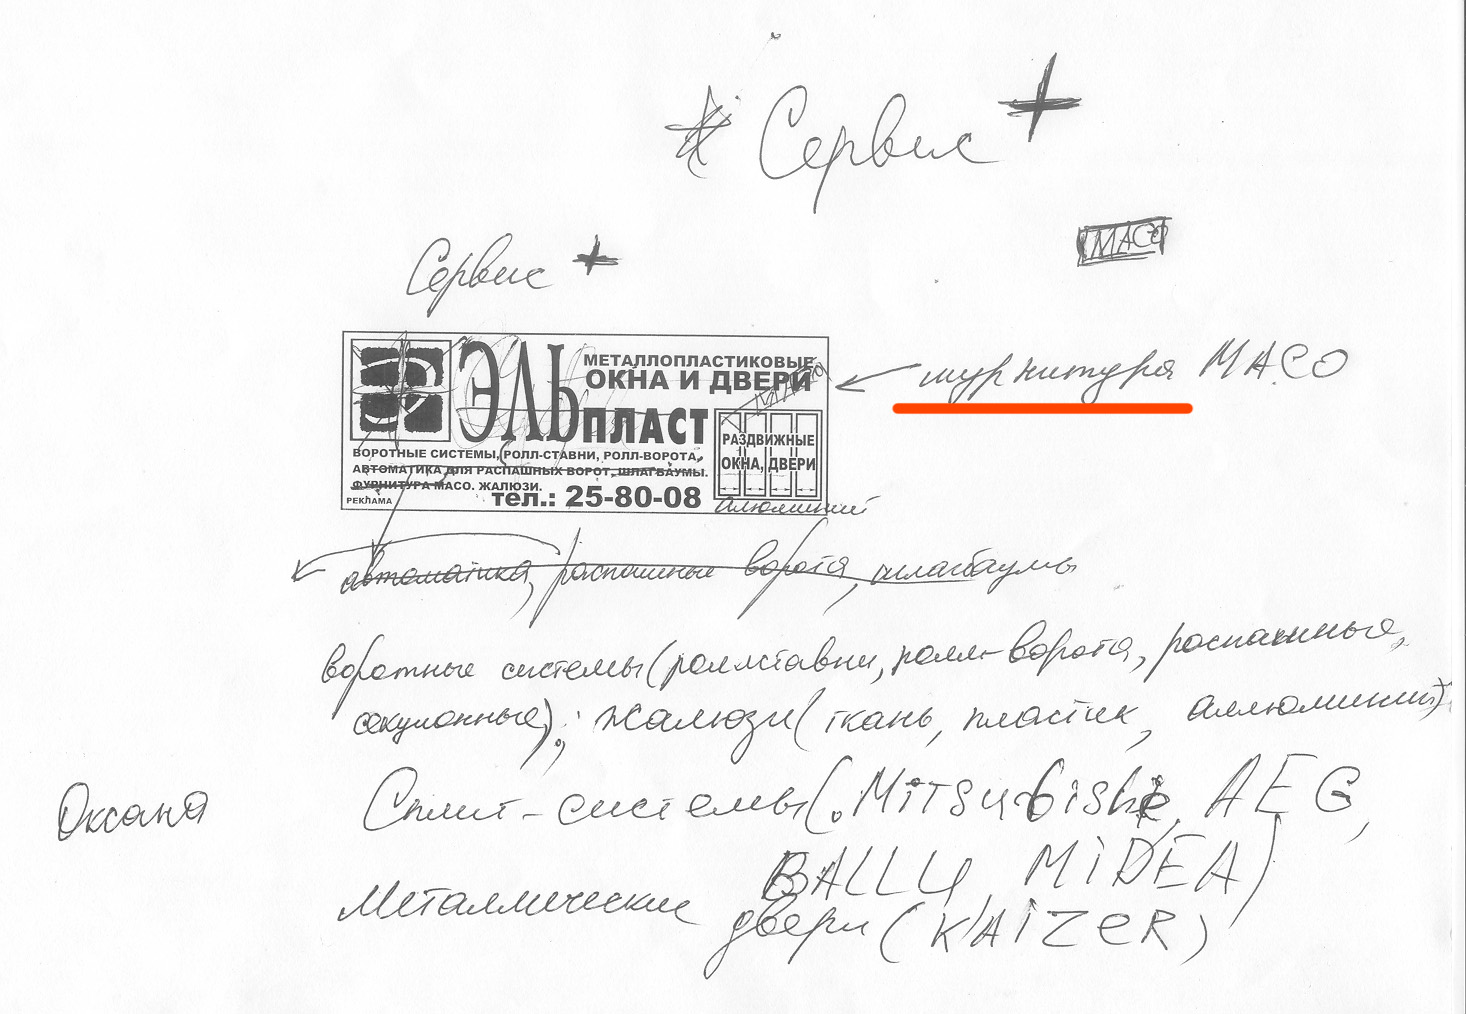 * Сервис +
MACO
Сервис +
ЭЛЬ ПЛАСТ
МЕТАЛЛОПЛАСТИКОВЫЕ
ОКНА И ДВЕРИ
MACO
шурнитура MACO
РАЗДВИЖНЫЕ
ОКНА, ДВЕРИ
ВОРОТНЫЕ СИСТЕМЫ, РОЛЛ-СТАВНИ, РОЛЛ-ВОРОТА,
АВТОМАТИКА ДЛЯ РАСПАШНЫХ ВОРОТ, ШЛАГБАУМЫ.
ФУРНИТУРА МАСО. ЖАЛЮЗИ.
РЕКЛАМА
тел.: 25-80-08
алюминий
автоматика, распашные ворота, шлагбаумы
воротные системы (роллставни, ролл-ворота, распашные,
секционные); жалюзи (ткань, пластик, аллюминий)
Оксана
Сплит-системы (Mitsubishi, AEG,
BALLY, MiDEA)
Металлические двери (KAiZER)